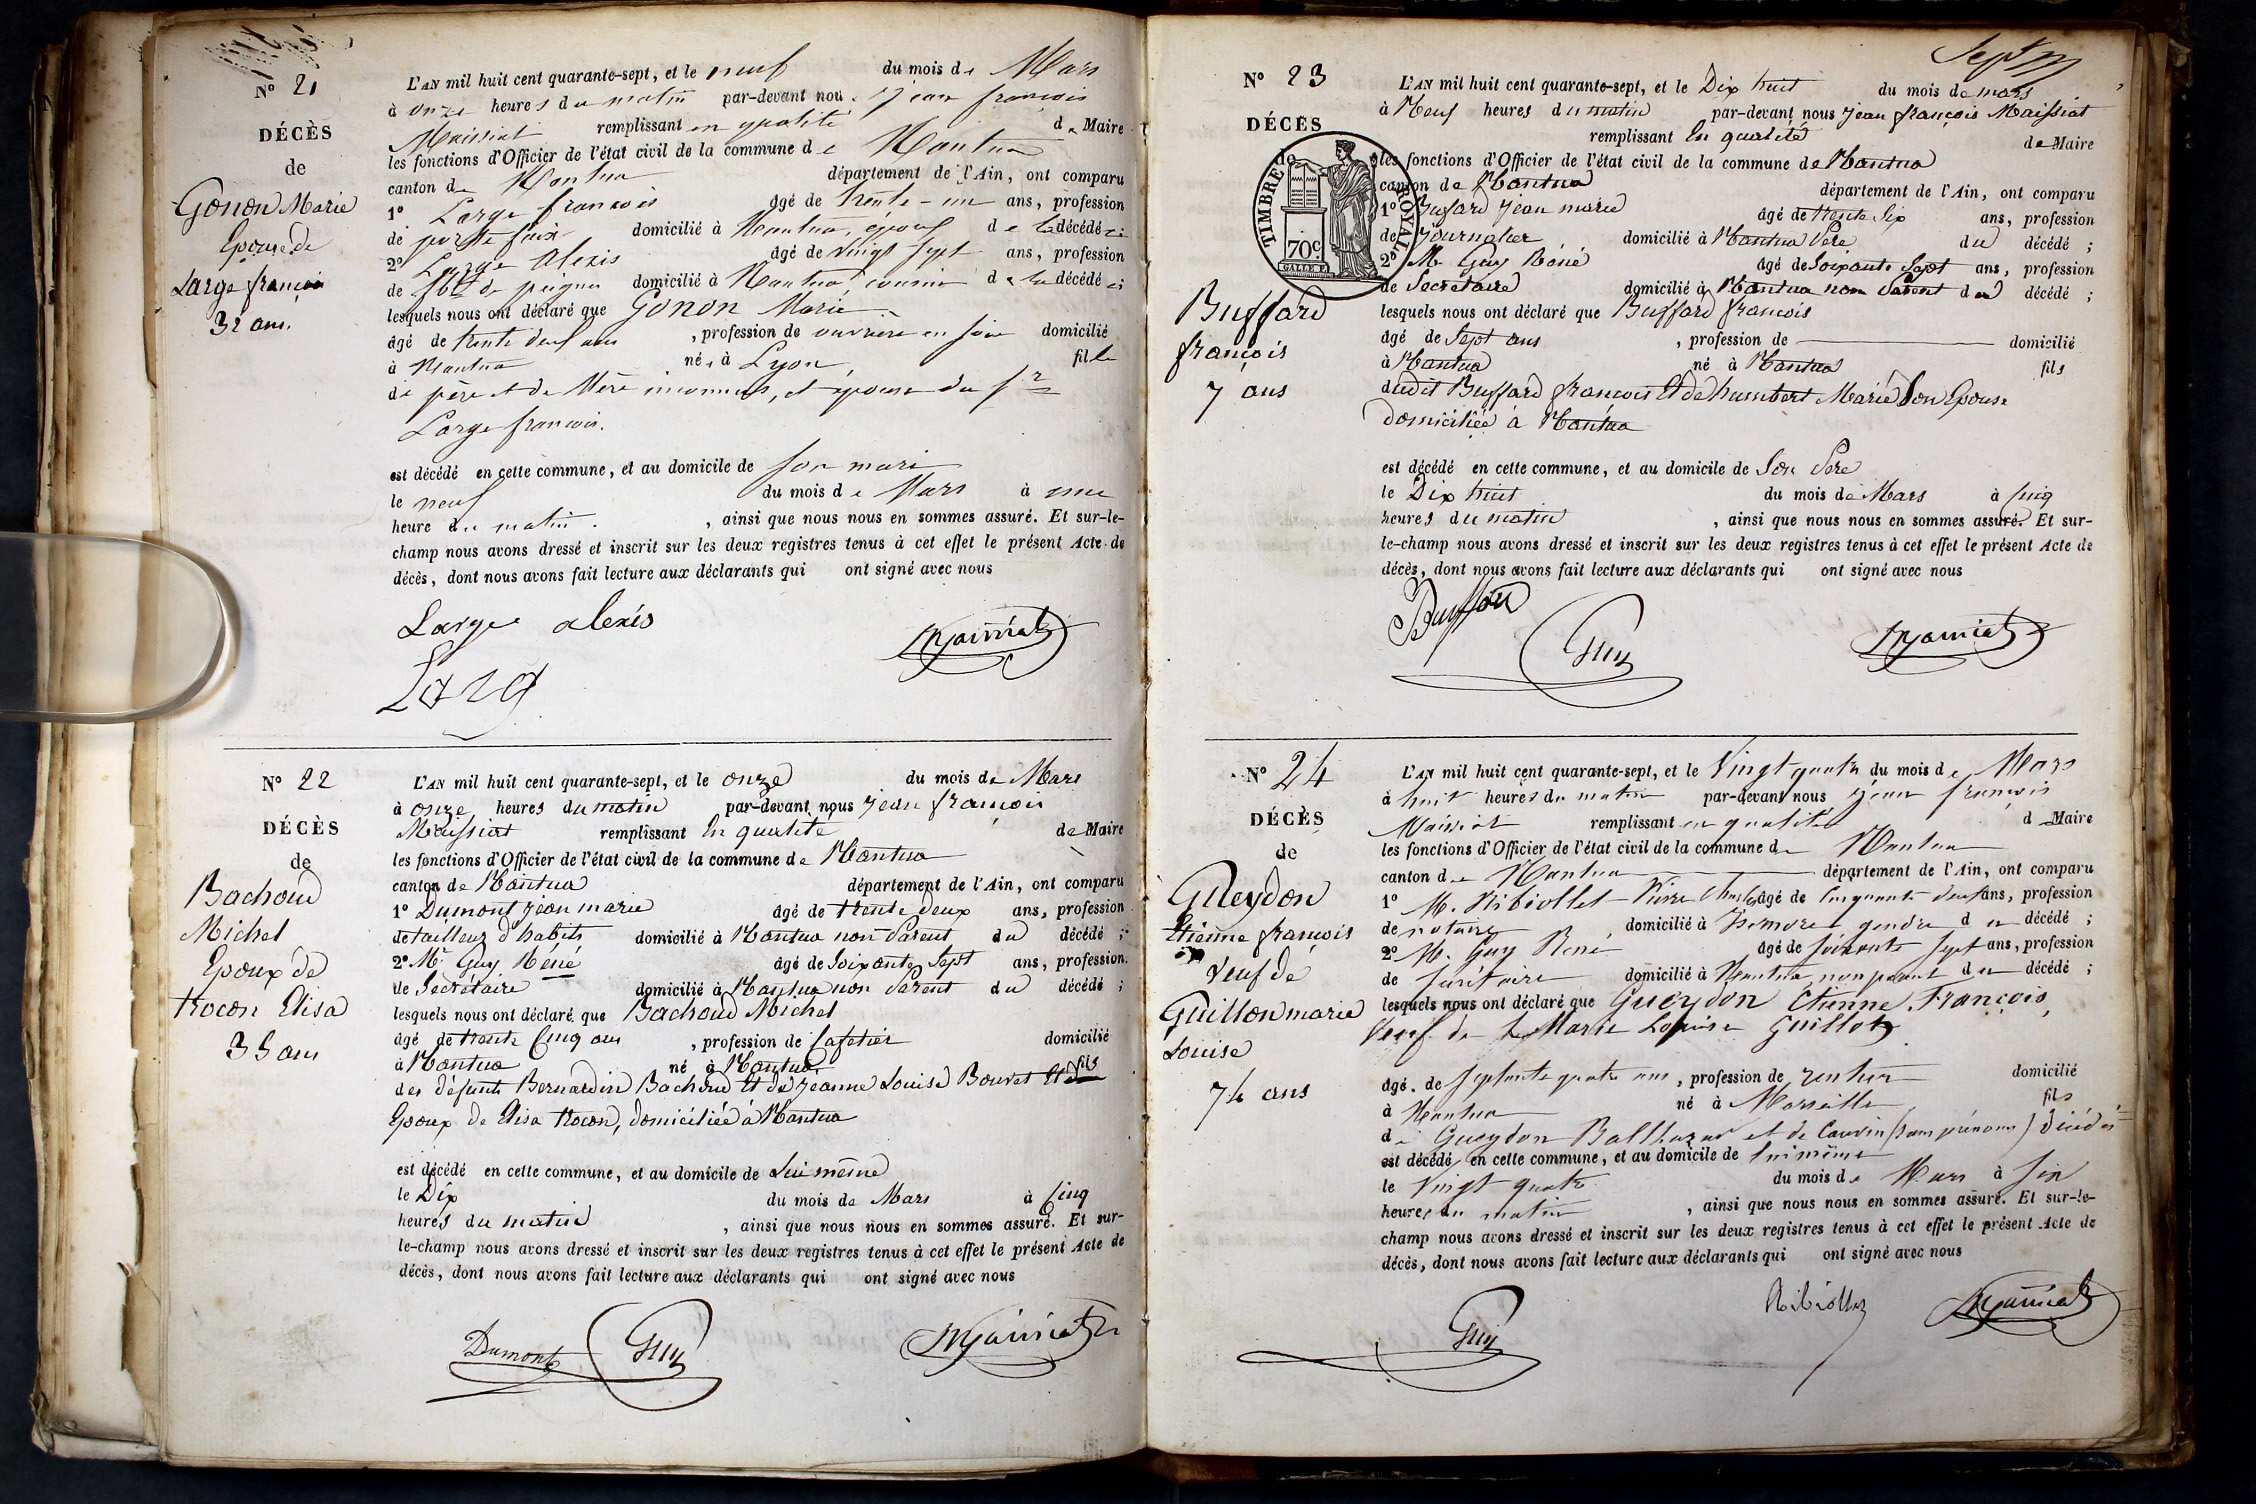 Nº 21
DÉCÈS
de
Gonon Marie
Epouse de
Large françois
32 ans.
L'AN mil huit cent quarante-sept, et le neuf du mois de Mars
à onze heures du matin par-devant nous Jean françois
Maissiat remplissant en qualité de Maire
les fonctions d'Officier de l'état civil de la commune de Nantua
canton de Nantua département de l'Ain, ont comparu
1º Large françois âgé de trente-un ans, profession
de portefaix domicilié à Nantua, époux de la décédée;
2º Large Alexis âgé de vingt sept ans, profession
de fbt de peignes domicilié à Nantua, cousin de la décédée;
lesquels nous ont déclaré que Gonon Marie
âgé de trente deux ans, profession de ouvrière en soie domicilié
à Nantua née à Lyon, fille
de père et de Mère inconnus, et épouse du sr
Large françois.
est décédé en cette commune, et au domicile de son mari
le neuf du mois de Mars à une
heure du matin, ainsi que nous nous en sommes assuré. Et sur-le-
champ nous avons dressé et inscrit sur les deux registres tenus à cet effet le présent Acte de
décès, dont nous avons fait lecture aux déclarants qui ont signé avec nous
Large alexis
Maissiat
Larg
Nº 22
DÉCÈS
de
Bachoud
Michel
Epoux de
trocon Elisa
35 ans
L'AN mil huit cent quarante-sept, et le onze du mois de Mars
à onze heures du matin par-devant nous Jean françois
Maissiat remplissant En qualité de Maire
les fonctions d'Officier de l'état civil de la commune de Nantua
canton de Nantua département de l'Ain, ont comparu
1º Dumont Jean marie âgé de trente deux ans, profession
de tailleur d'habits domicilié à Nantua non Parent du décédé;
2º Mr Guy Réné âgé de Soixante Sept ans, profession
de Sécrétaire domicilié à Nantua non Parent du décédé;
lesquels nous ont déclaré que Bachoud Michel
âgé de trente Cinq ans, profession de Cafetier domicilié
à Nantua né à Nantua fils
des défunts Bernardin Bachoud Et de Jeanne Louise Bouvet Et
Epoux de Elisa trocon, domiciliée à Nantua
est décédé en cette commune, et au domicile de Lui même
le Dix du mois de Mars à Cinq
heures du matin, ainsi que nous nous en sommes assuré. Et sur-
le-champ nous avons dressé et inscrit sur les deux registres tenus à cet effet le présent Acte de
décès, dont nous avons fait lecture aux déclarants qui ont signé avec nous
Dumont Guy Maissiat
Sept
Nº 23
DÉCÈS
de
TIMBRE ROYAL
70c.
Buffard
françois
7 ans
L'AN mil huit cent quarante-sept, et le Dix huit du mois de mars
à Neuf heures du matin par-devant nous Jean françois Maissiat
remplissant En qualité de Maire
les fonctions d'Officier de l'état civil de la commune de Nantua
canton de Nantua département de l'Ain, ont comparu
1º Bufard Jean marie âgé de trente Six ans, profession
de Journalier domicilié à Nantua Père du décédé;
2º Mr Guy Réné âgé de Soixante Sept ans, profession
de Secretaire domicilié à Nantua non Parent du décédé;
lesquels nous ont déclaré que Buffard françois
âgé de Sept ans, profession de domicilié
à Nantua né à Nantua fils
dudit Buffard françois Et de humbert Marie Son Epouse
domiciliée à Nantua
est décédé en cette commune, et au domicile de Son Père
le Dix huit du mois de Mars à Cinq
heures du matin, ainsi que nous nous en sommes assuré. Et sur-
le-champ nous avons dressé et inscrit sur les deux registres tenus à cet effet le présent Acte de
décès, dont nous avons fait lecture aux déclarants qui ont signé avec nous
Guy Maissiat
Nº 24
DÉCÈS
de
Gueydon
Etienne françois
Veuf de
Guillon marie
Louise
74 ans
L'AN mil huit cent quarante-sept, et le Vingt quatre du mois de Mars
à huit heures du matin par-devant nous Jean françois
Maissiat remplissant en qualité de Maire
les fonctions d'Officier de l'état civil de la commune de Nantua
canton de Nantua département de l'Ain, ont comparu
1º M. Ribiollet Pierre Charles âgé de Cinquante deux ans, profession
de notaire, domicilié à Izernore gendre du décédé;
2º M. Guy René âgé de soixante sept ans, profession
de sécrétaire domicilié à Nantua, non parent du décédé;
lesquels nous ont déclaré que Gueydon Etienne François,
Veuf de Marie Louise Guillot
âgé de septante quatre ans, profession de rentier domicilié
à Nantua né à Marseille fils
de Gueydon Balthazar et de Cauvin (sans prénoms) décédés
est décédé en cette commune, et au domicile de lui même
le Vingt quatre du mois de Mars à six
heures du matin, ainsi que nous nous en sommes assuré. Et sur-le-
champ nous avons dressé et inscrit sur les deux registres tenus à cet effet le présent Acte de
décès, dont nous avons fait lecture aux déclarants qui ont signé avec nous
Guy Ribiollet Maissiat